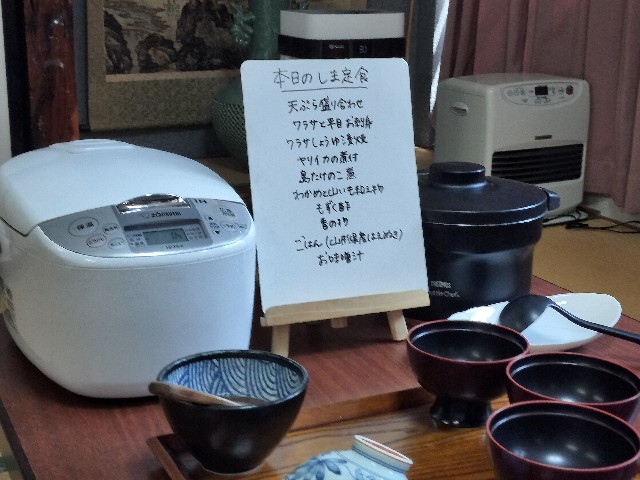 本日のしま定食
天ぷら盛り合わせ
ワラサと平目お刺身
ワラサしょうゆ漬焼
ヤリイカの煮付
島たけのこ煮
わかめと山いも和え物
もずく酢
香の物
ごはん(山形県産はえぬき)
お味噌汁
ZOJIRUSHI
保温